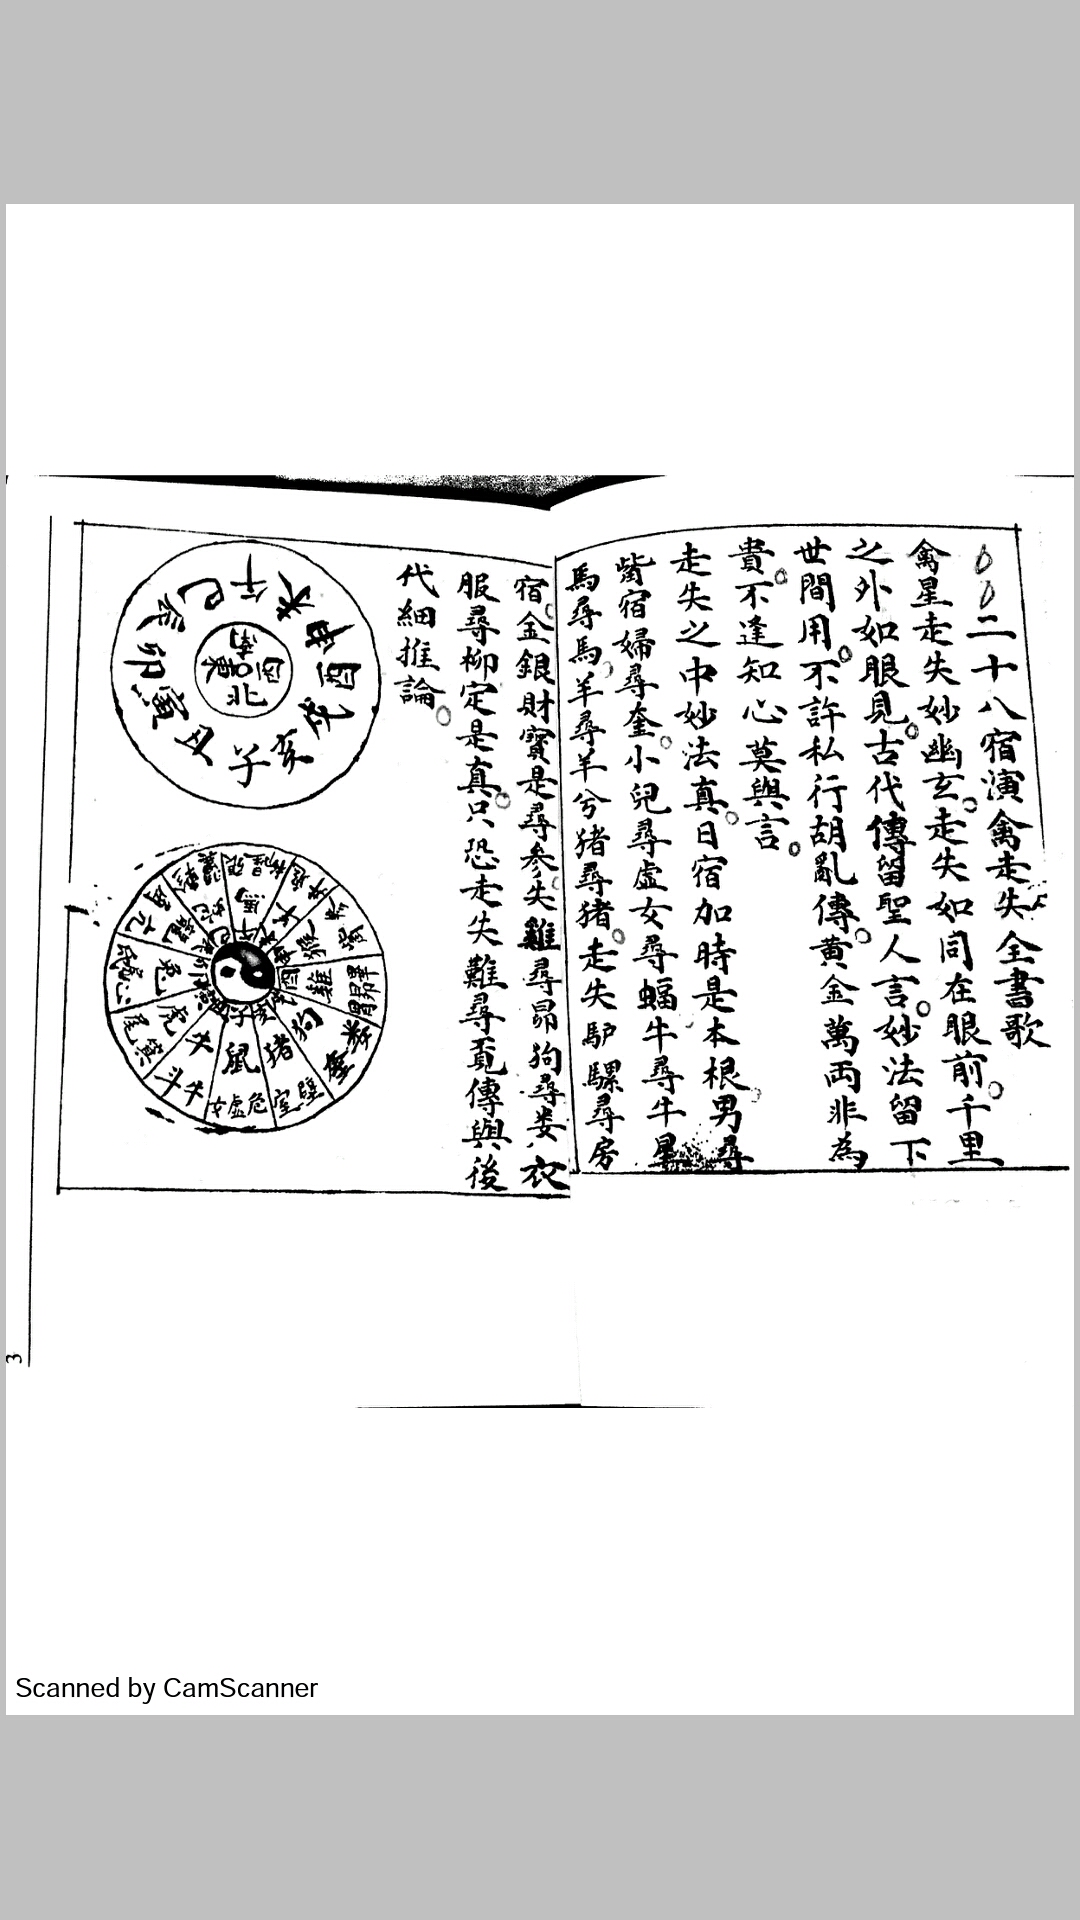 二十八宿演禽走失全書歌
禽星走失妙幽玄走失如同在眼前千里
之外如眼見古代傳留聖人言妙法留下
世間用不許私行胡亂傳黃金萬両非為
貴不逢知心莫與言
走失之中妙法真日宿加時是本根男尋
觜宿婦尋奎小兒尋虛女尋蝠牛尋牛星
馬尋馬羊尋羊兮猪尋猪走失馿騾尋房
宿金銀財寶是尋參失雞尋昴狗尋娄衣
服尋柳定是真只恐走失難尋覓傳與後
代細推論
南
東 西
北
午 未 申 酉 戌 亥 子 丑 寅 卯 辰 巳
馬 猴 雞 狗 猪 鼠 牛 虎 兔 龍 蛇
子
室 壁
女 虛 危
斗 牛
尾 箕
3
Scanned by CamScanner